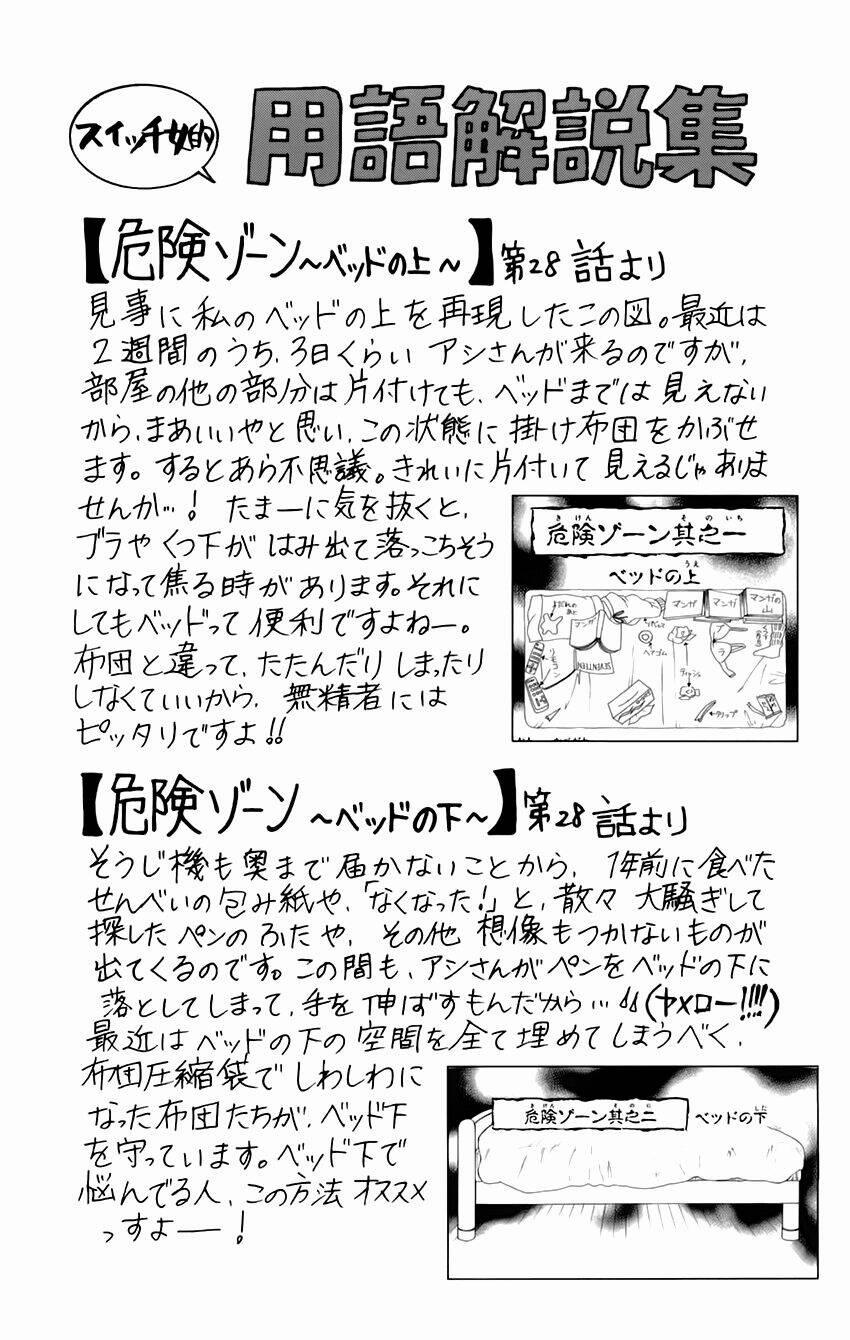 スイッチ女的
用語解説集
【危険ゾーン～ベッドの上～】第28話より
見事に私のベッドの上を再現したこの図。最近は
2週間のうち、3日くらいアシさんが来るのですが、
部屋の他の部分は片付けても、ベッドまでは見えない
から、まあいいやと思い、この状態に掛け布団をかぶせ
ます。するとあら不思議。きれいに片付いて見えるじゃありま
せんか…！たまーに気を抜くと、
ブラやくつ下がはみ出て落っこちそう
になって焦る時があります。それに
してもベッドって便利ですよねー。
布団と違って、たたんだりしまったり
しなくていいから、無精者には
ピッタリですよ!!
きけん そのいち
危険ゾーン其之一
うえ
ベッドの上
マンガ
マンガ
マンガの山
マンガ
リモコン
SEVENTEEN
ヘアゴム
ティッシュ
ブラ
クリップ
【危険ゾーン～ベッドの下～】第28話より
そうじ機も奥まで届かないことから、1年前に食べた
せんべいの包み紙や、「なくなった！」と、散々大騒ぎして
探したペンのふたや、その他想像もつかないものが
出てくるのです。この間も、アシさんがペンをベッドの下に
落としてしまって、手を伸ばすもんだから…（ヤメロー!!!!）
最近はベッドの下の空間を全て埋めてしまうべく、
布団圧縮袋でしわしわに
なった布団たちが、ベッド下
を守っています。ベッド下で
悩んでる人、この方法オススメ
っすよー！
きけん そのに
危険ゾーン其之二
した
ベッドの下